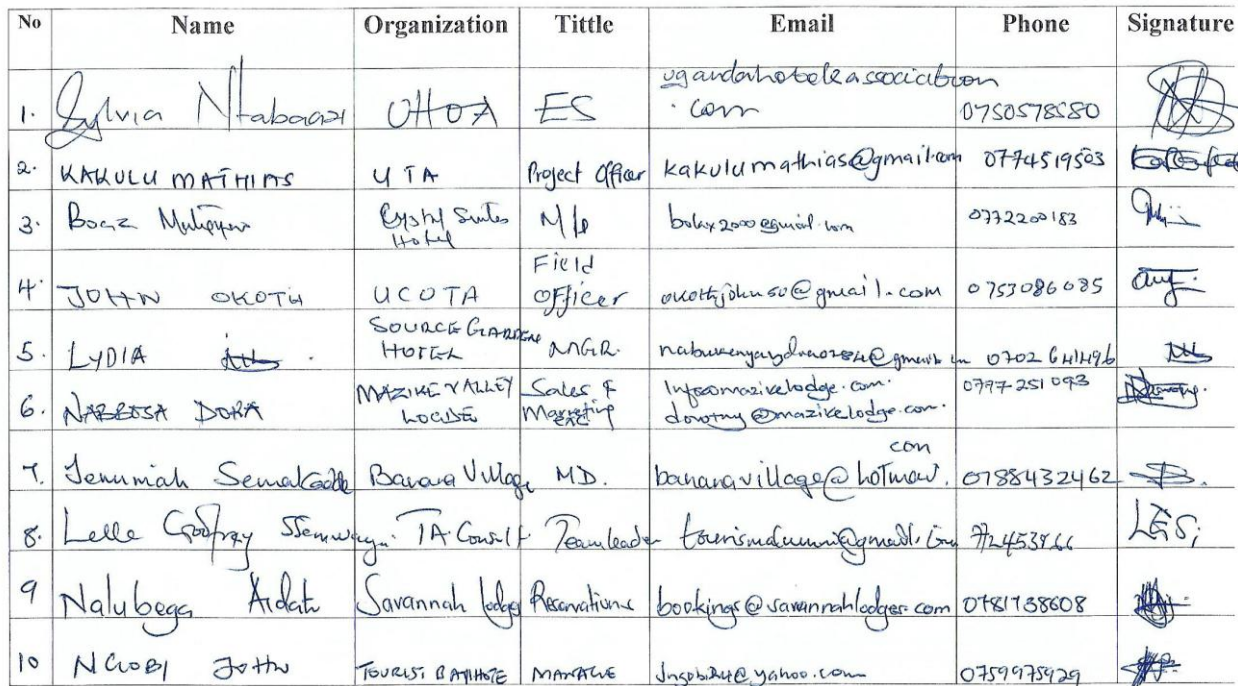 No Name Organization Tittle Email Phone Signature
1. Sylvia Ntabaazi UHOA ES ugandahotelsassociation.com 0750578580
2. KAKULU MATHIAS UTA Project Officer kakulumathias@gmail.com 0774519503
3. Boaz Crystal Suites Hotel bolax2000@gmail.com 0772200183
4. JOHN OKOTH UCOTA Field Officer okothjohn50@gmail.com 0753086085
5. LYDIA SOURCE GARDENS HOTEL MGR. 0702641496
6. NABBOSA DORA MAZIKE VALLEY LODGE Sales & Marketing exc Info@mazikelodge.com. dorothy@mazikelodge.com. 0797251093
7. Banana Village MD. bananavillage@hotmail.com 07884432462
8. Lelle Godfrey TA. Consult Teamleader LGS;
9 Nalubega Aidah Savannah lodges Reservations bookings@savannahlodges.com 0781738608
10 NGOBI JOHN 0759975929